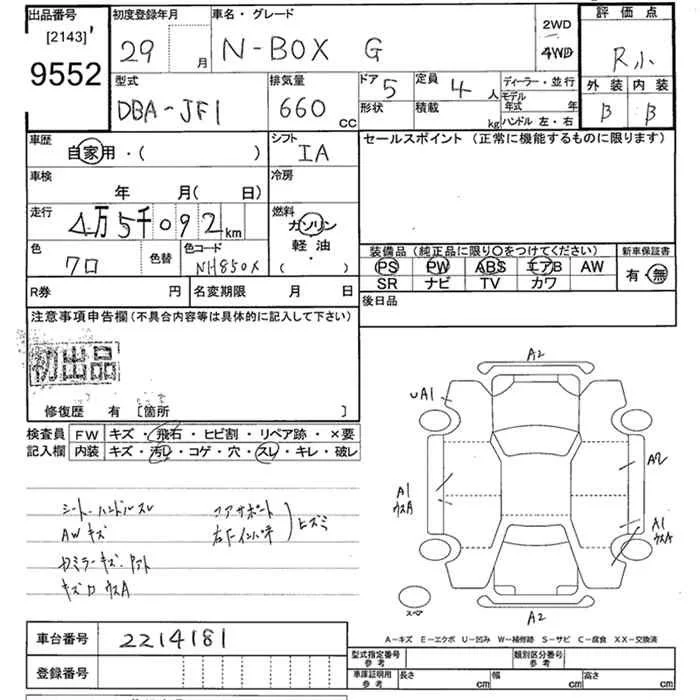 出品番号 初度登録年月 車名・グレード 2WD 評価点
[2143]' 29 月 N-BOX G 4WD R小
9552
型式 排気量 ドア 5 定員 4 人 ディーラー・並行 外装 内装
DBA-JF1 660 cc 形状 積載 kg モデル年式 年 B B
ハンドル 左・右
車歴 自家用・( ) シフト IA セールスポイント (正常に機能するものに限ります)
車検 年 月( 日) 冷房
走行 4万5千092km 燃料 ガソリン
軽油・( )
色 クロ 色替 色コード NH850X
装備品 (純正品に限り○をつけてください) 新車保証書
PS PW ABS エアB AW 有・無
SR ナビ TV カワ
R券 円 名変期限 月 日 後日品
注意事項申告欄 (不具合内容等は具体的に記入して下さい)
初出品
修復歴 有 [箇所 ]
検査員 FW キズ・飛石・ヒビ割・リペア跡・×要
記入欄 内装 キズ・汚レ・コゲ・穴・スレ・キレ・破レ
シート・ハンドルスレ
AWキズ
キズロ ウスA
コアサポート
右Fインパネ
ヒズミ
A2
UA1
A2
A1
ウスA
A1
ウスA
スペア
A2
A-キズ E-エクボ U-凹み W-補修跡 S-サビ C-腐食 XX-交換済
車台番号 2214181
登録番号
型式指定番号 参考 類別区分番号 参考
車庫証明用 参考 長さ cm 幅 cm 高さ cm